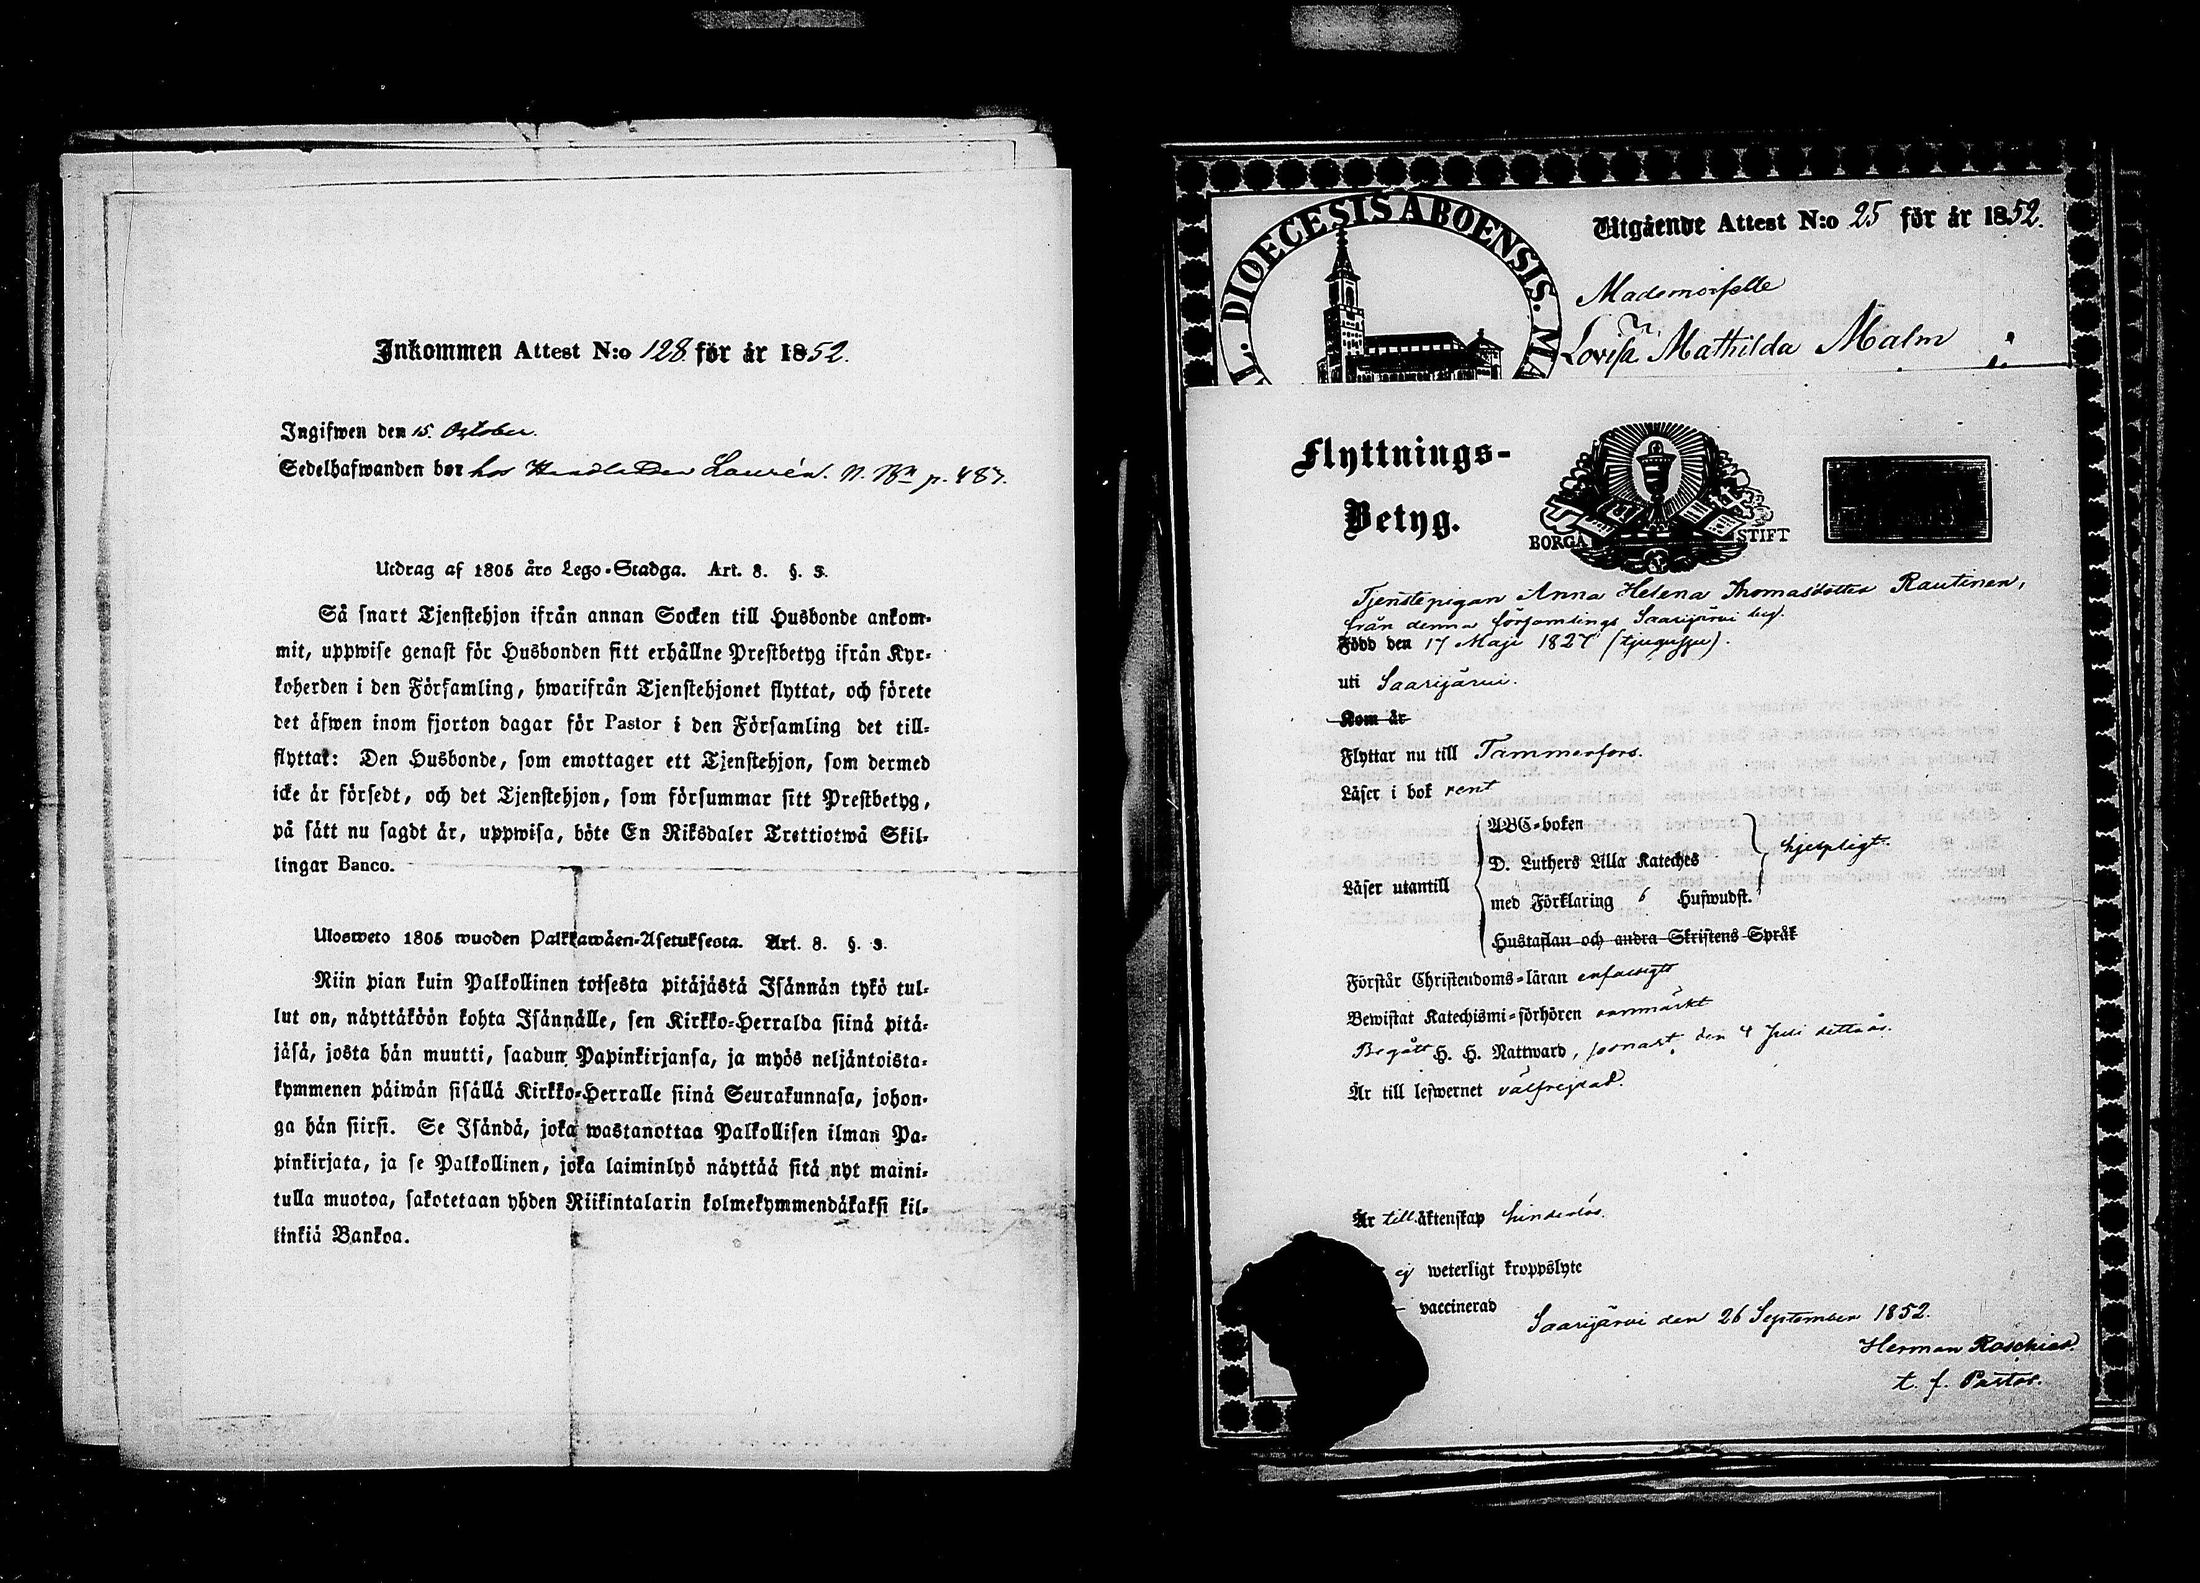 Inkommen Attest N:o 128 för år 1852.
Ingifwen den 15. October.
Sedelhafwanden bor hos Laurén. p. 487.
Utdrag af 1805 års Lego-Stadga. Art. 8. §. 3.
Så snart Tjenstehjon ifrån annan Socken till Husbonde ankom-
mit, uppwise genast för Husbonden sitt erhållne Prestbetyg ifrån Kyr-
koherden i den Församling, hwarifrån Tjenstehjonet flyttat, och förete
det äfwen inom fjorton dagar för Pastor i den Församling det till-
flyttat: Den Husbonde, som emottager ett Tjenstehjon, som dermed
icke är försedt, och det Tjenstehjon, som försummar sitt Prestbetyg,
på sätt nu sagdt är, uppwisa, böte En Riksdaler Trettiotwå Skil-
lingar Banco.
Ulosweto 1805 wuoden Palkkawäen-Asetuksesta. Art. 8. §. 3.
Niin pian kuin Palkollinen toisesta pitäjästä Isännän tykö tul-
lut on, näyttäköön kohta Isännälle, sen Kirkko-Herralda siinä pitä-
jäsä, josta hän muutti, saadun Papinkirjansa, ja myös neljäntoista-
kymmenen päiwän sisällä Kirkko-Herralle siinä Seurakunnasa, johon-
ga hän siirsi. Se Isändä, joka wastanottaa Palkollisen ilman Pa-
pinkirjata, ja se Palkollinen, joka laiminlyö näyttää sitä nyt maini-
tulla muotoa, sakotetaan yhden Riikintalarin kolmekymmendäkaksi kil-
linkiä Bankoa.
DIOECESIS ABOENSIS.
Utgående Attest N:o 25 för år 1852.
Mademoiselle
Lovisa Mathilda Malm
Flyttnings-
Betyg.
BORGÅ STIFT
Tjenstepigan Anna Helena Thomasdotter Rautinen,
från denna församlings Saarijärvi by.
Född den 17 Maji 1827 (tjugusju).
uti Saarijärvi.
Kom år
Flyttar nu till Tammerfors.
Läser i bok rent
ABC-boken
D. Luthers Lilla Kateches
hjelpligt.
Läser utantill
med Förklaring 6 Hufwudst.
Hustaflan och andra Skriftens Språk
Förstår Christendoms-läran enfaldigt
Bewistat Katechismi-förhören anmärkt
Begått H. H. Nattward, senast den 4 Juli detta år.
Är till lefwernet välfrejdad.
Är till äktenskap hinderlös.
ej weterligt kroppslyte
vaccinerad
Saarijärvi den 26 September 1852.
Herman Roschier
t. f. Pastor.